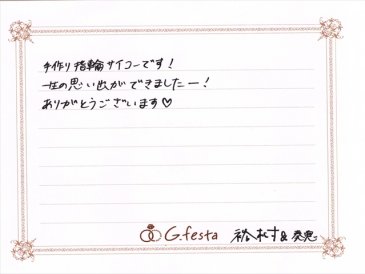 手作り指輪サイコーです！
一生の思い出ができましたー！
ありがとうございます♡
G.festa
&